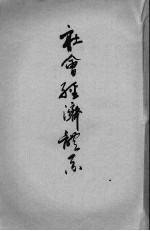 社會經濟體系